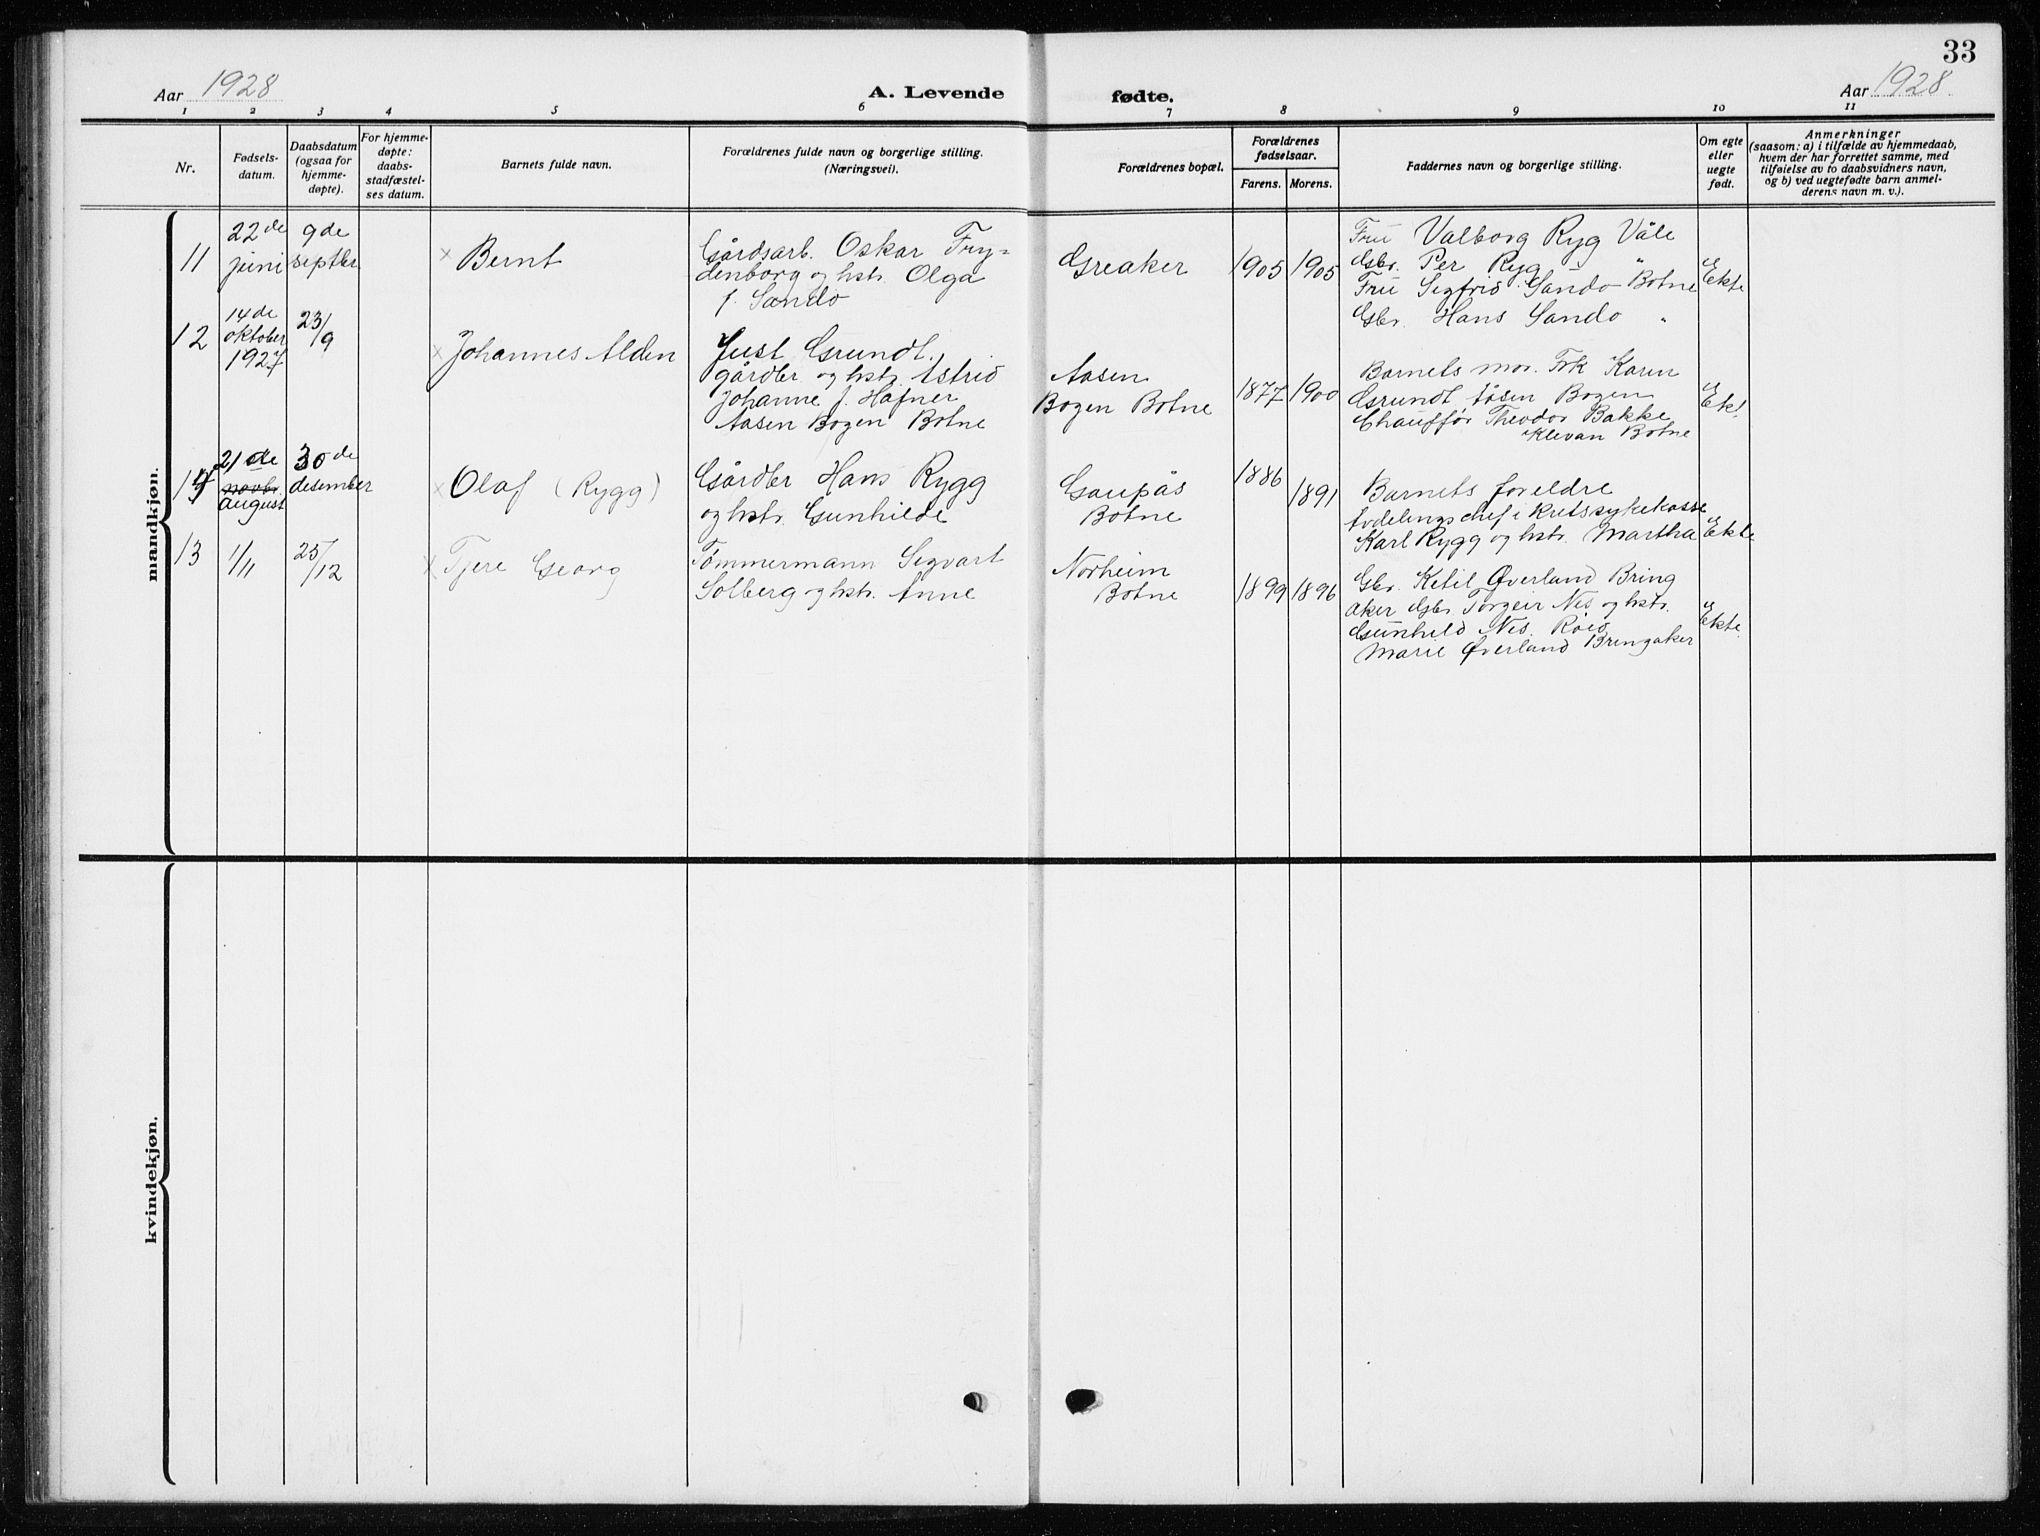 33
Aar 1928
A. Levende fødte.
Aar 1928.
1 2 3 4 5 6 7 8 9 10 11
Nr.
Fødsels-
datum.
Daabsdatum
(ogsaa for
hjemme-
døpte).
For hjemme-
døpte:
daabs-
stadfæstel-
ses datum.
Barnets fulde navn.
Forældrenes fulde navn og borgerlige stilling.
(Næringsvei).
Forældrenes bopæl.
Forældrenes
fødselsaar.
Farens. Morens.
Faddernes navn og borgerlige stilling.
Om egte
eller
uegte
født.
Anmerkninger
(saasom: a) i tilfælde av hjemmedaab,
hvem der har forrettet samme, med
tilføielse av to daabsvidners navn,
og b) ved uegtefødte barn anmel-
derens navn m. v.).
mandkjøn.
11
22de
juni
9de
septbr
× Bernt
Gårdsarb. Oskar Fry=
denborg og hstr. Olga
f. Sando
Greaker
1905 1905
Fru Valborg Ryg Våle
Gbr. Per Ryg "
Fru Sigfrid Sando Botne
Gbr. Hans Sando "
Ekte
12
14de
oktober
1927
23/9
× Johannes Alden
Just Grundt.
gårdbr og hstr. Astrid
Johanne f. Hafner
Aasen Bogen Botne
Aasen
Bogen Botne
1877 1900
Barnets mor. Frk Karin
Grundt Åsen Bogen
Chauffør Theodor Bakke
Klevan Botne
Ekt.
14
21de
novbr.
august
30de
desember
× Olaf (Rygg)
Gårdbr Hans Rygg
og hstr. Gunhilde
Gaupås
Botne
1886
1891
Barnets foreldre
Avdelingschef i Kretssykekasse
Karl Rygg og hstr. Martha
Ekte
13
1/11
25/12
× Tjere Georg
Tømmermann Sigvart
Solberg og hstr. Anne
Norheim
Botne
1899 1896
Gbr. Ketil Øverland Bring
aker Gbr. Torgeir Nes og hstr.
Gunhild Nes.
Marie Øverland Bringaker
Ekte.
kvindekjøn.